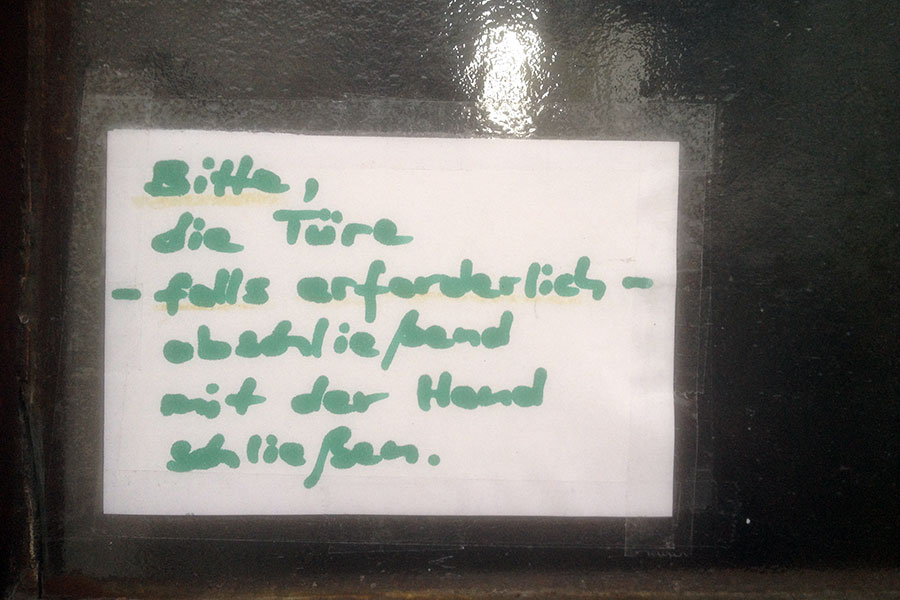 Bitte,
die Türe
- falls erforderlich -
abschließend
mit der Hand
schließen.